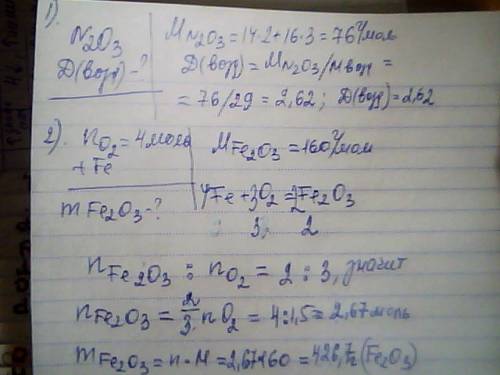 1).
N2O3 | M N2O3 = 14·2+16·3 = 76 г/моль
Д(возд) -? | Д(возд) = M N2O3 / M возд =
= 76/29 = 2,62; Д(возд) = 2,62
2). n O2 = 4 моль | M Fe2O3 = 160 г/моль
+ Fe
m Fe2O3 -? | 4Fe + 3O2 = 2Fe2O3
3 2
n Fe2O3 : n O2 = 2 : 3, значит
n Fe2O3 = 2/3 n O2 = 4:1,5 = 2,67 моль
m Fe2O3 = n·M = 2,67·160 = 426,7 г (Fe2O3)